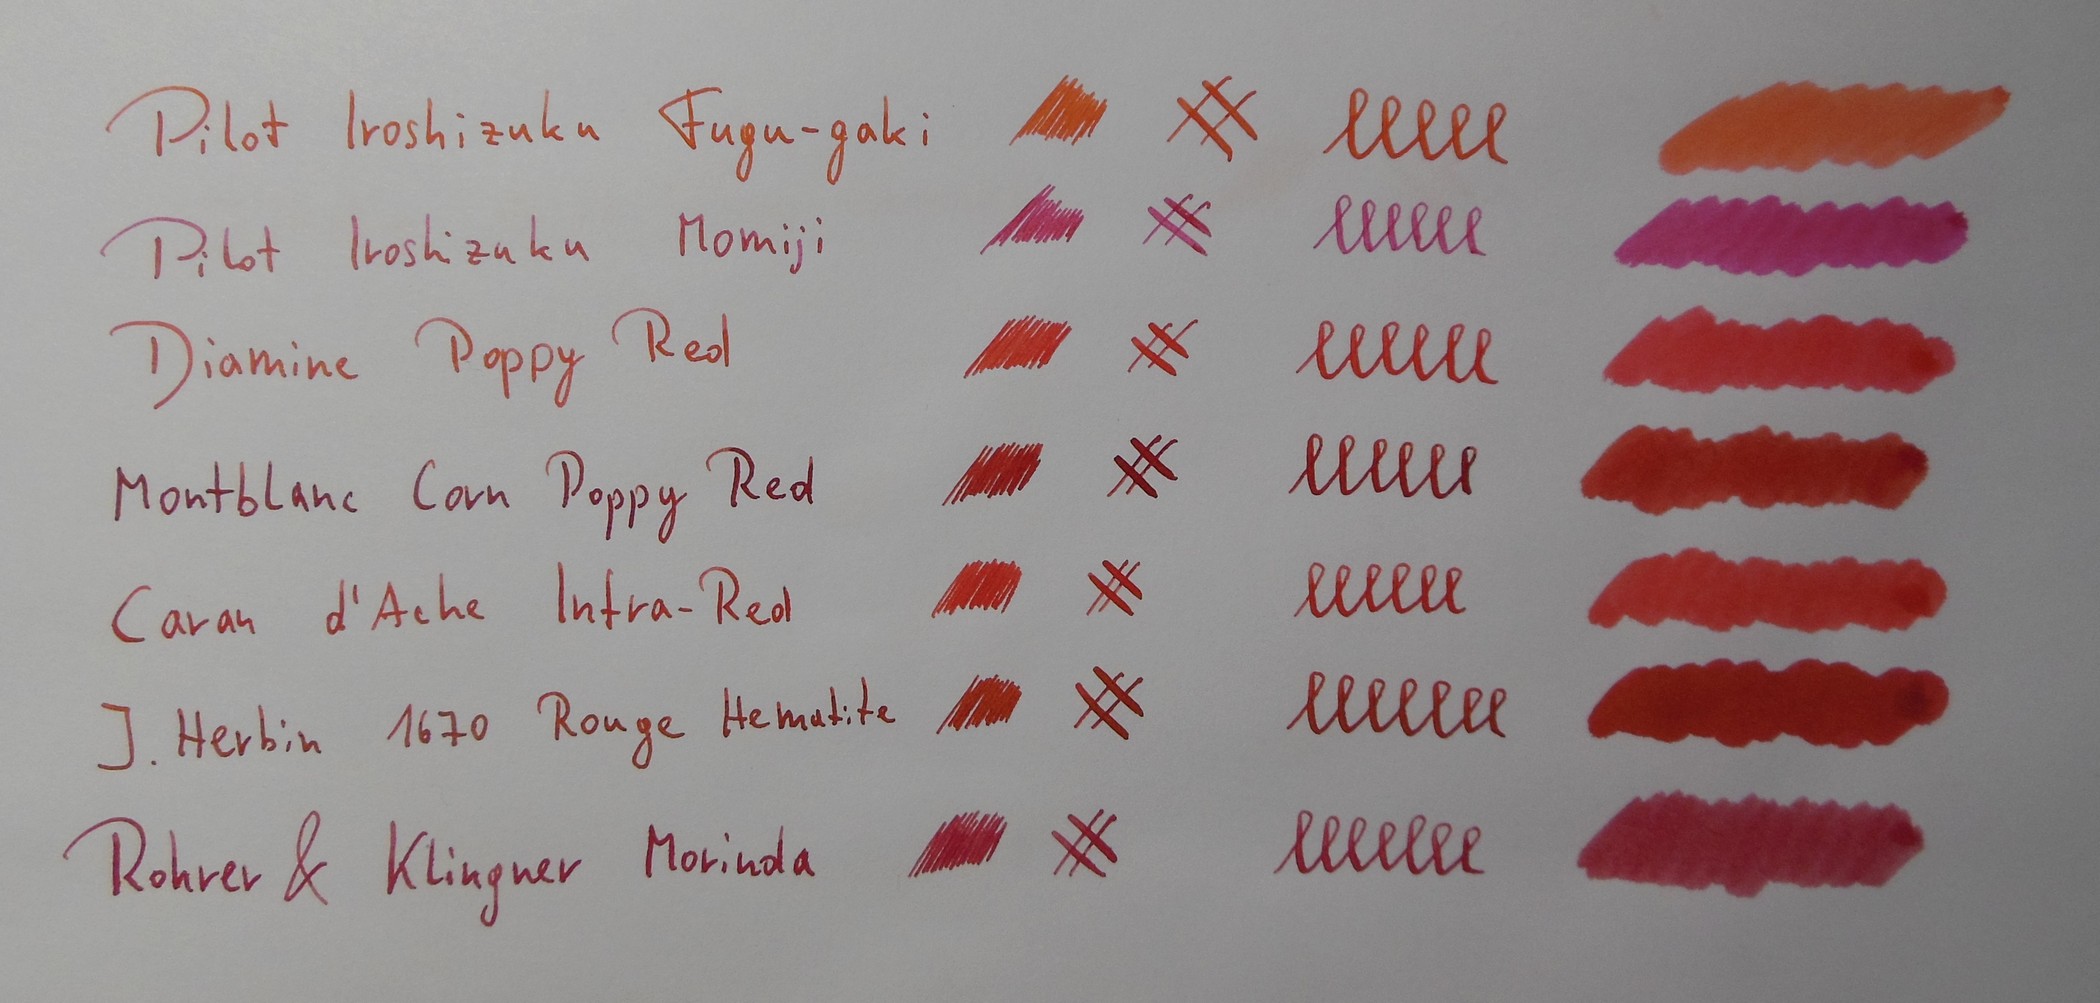 Pilot Iroshizuku Fugu-gaki
Pilot Iroshizuku Momiji
Diamine Poppy Red
Montblanc Corn Poppy Red
Caran d'Ache Infra-Red
J. Herbin 1670 Rouge Hematite
Rohrer & Klingner Morinda